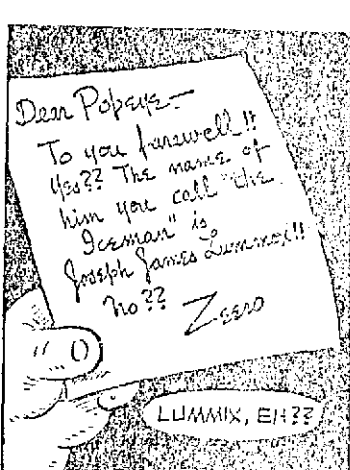 Dear Popeye—
To you farewell!!
Yes?? The name of
him you call "the
Iceman" is
Joseph James Lummox!!
No??
Zeero
LUMMIX, EH??